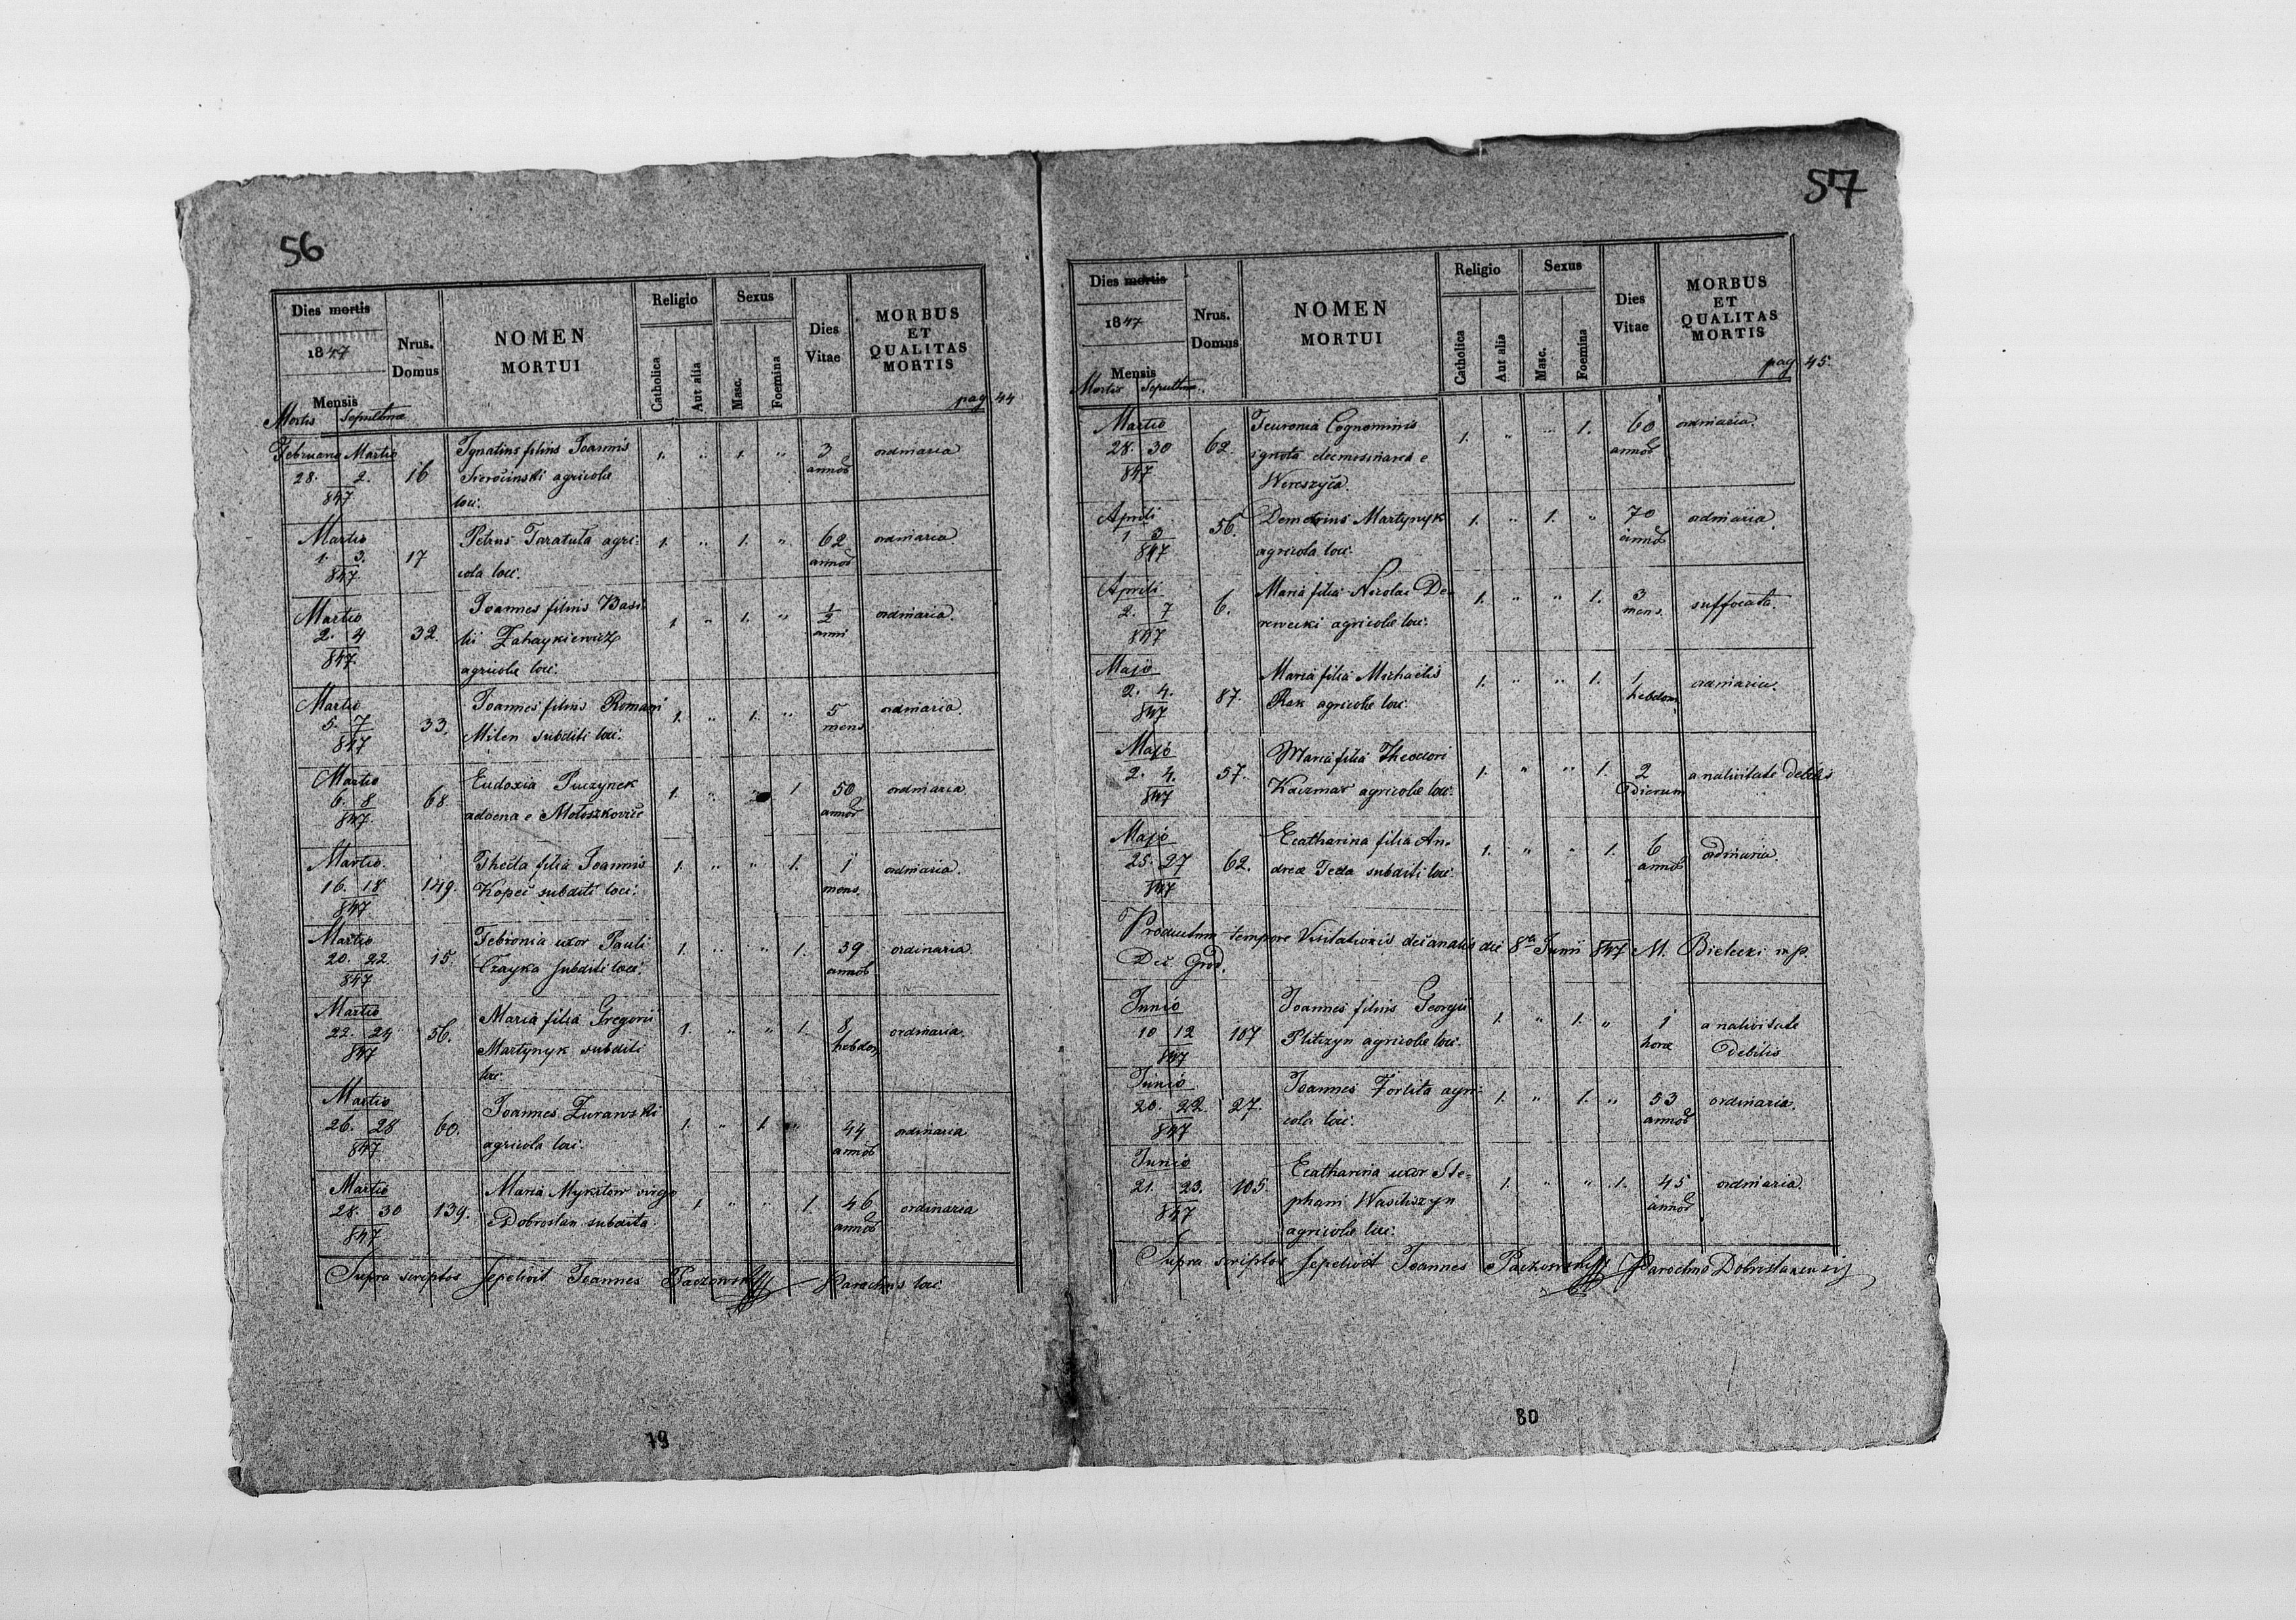 56
Dies mortis
1847
Mensis
Mortis Sepulturae
Nrus. Domus
NOMEN
MORTUI
Religio
Catholica
Aut alia
Sexus
Masc.
Foemina
Dies
Vitae
MORBUS
ET
QUALITAS
MORTIS
pag 44
Februario Martio
28. 2.
847
16
Ignatius filius Joannis
agricolae
loci.
1. " 1. "
3
annor
ordinaria
Martio
1. 3.
847.
17
Petrus Taratuta agri-
cola loci.
1. " 1. "
62
annor
ordinaria
Martio
2. 4
847.
32.
Joannes filius Basi-
lii Zahaykiewicz
agricolae loci.
1 " 1. "
1/2
anni
ordinaria.
Martio
5. 7
847
33.
Joannes filius Romani
Milen subditi loci.
1. " 1. "
5
mens
ordinaria.
Martio
6. 8
847.
68.
Eudoxia Puczynek
advena e Motoszkovice
1. " " 1
50
annor
ordinaria
Martio
16. 18
847
149.
Thecla filia Joannis
Kopeć subditi loci.
1. " " 1.
1
mens.
ordinaria.
Martio
20. 22.
847
15.
Febronia uxor Pauli
Czayka subditi loci.
1. " " 1.
39
annor
ordinaria.
Martio
22. 24
847
56.
Maria filia Gregorii
Martynyk subditi
loci.
1. " " 1.
8
hebdom
ordinaria.
Martio
26. 28
847
60.
Joannes Zurawski
agricola loci.
1. " 1. "
44
annor
ordinaria
Martio
28. 30
847
139.
Maria Mykitow virgo
Dobrostan subdita.
1. " " 1.
46
annor
ordinaria
Supra scriptos Sepelivit Joannes Paczowski Parochus loci.
79
57
Dies mortis
1847
Mensis
Mortis Sepulturae
Nrus.
Domus
NOMEN
MORTUI
Religio
Catholica
Aut alia
Sexus
Masc.
Foemina
Dies
Vitae
MORBUS
ET
QUALITAS
MORTIS
pag 45.
Martio
28. 30
847
62.
Cognominis
ignota e
Wereszyca.
1. " " 1.
60
annor
ordinaria.
Aprili
1 3
847
56.
Demetrius Martynyk
agricola loci.
1. " 1. "
70
annor
ordinaria.
Aprili
2. 7
847
6.
Maria filia Nicolai De-
rewecki agricolae loci.
1. " " 1.
3
mens.
suffocata.
Majo
2. 4.
847
87.
Maria filia Michaelis
Rak agricolae loci.
1. " " 1.
1
hebdom
ordinaria.
Majo
2. 4.
847
57.
Maria filia Theodori
Kaczmar agricolae loci.
1. " " 1.
2
dierum
a nativitate debilis
Majo
25. 27
847
62.
Ecatharina filia An-
dreae Tecla subditi loci.
1. " " 1.
6
annor
ordinaria.
Productum tempore Visitationis decanalis die 8va Junii 847 M. Bielecki mp.
Dec. Grod.
Junio
10 12
847
107
Joannes filius Georgii
Plitczyn agricolae loci.
1. " 1. "
1
hora
a nativitate
debilis
Junio
20. 22.
847
27.
Joannes Forlita agri-
cola loci.
1. " 1. "
53
annor
ordinaria.
Junio
21. 23.
847
105.
Ecatharina uxor Ste-
phani Wasiliszyn
agricolae loci.
1. " " 1.
45
annor
ordinaria.
Supra scriptos Sepelivit Joannes Paczowski Parochus Dobrostanensis
80